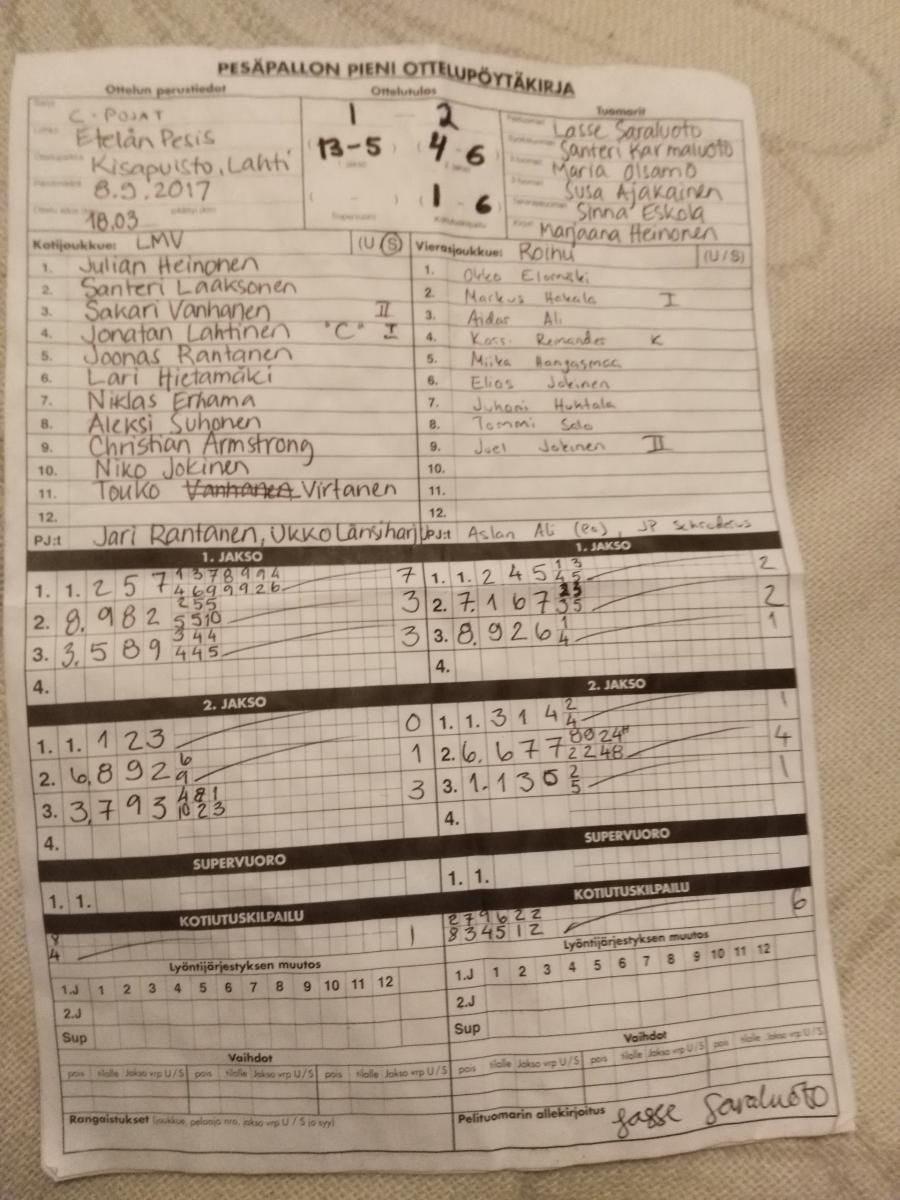 PESÄPALLON PIENI OTTELUPÖYTÄKIRJA
Ottelun perustiedot
C-POJAT
Etelän Pesis
Kisapuisto, Lahti
8.9.2017
18.03
Ottelutulos
1 - 2
(13-5) (4 6)
( - ) (1 - 6)
Supervuoro
Tuomarit
Lasse Saraluoto
Santeri Karmaluoto
Maria Olsamo
Susa Ajakainen
Sinna Eskola
Marjaana Heinonen
Kotijoukkue: LMV (U/S)
1. Julian Heinonen
2. Santeri Laaksonen
3. Sakari Vanhanen II
4. Jonatan Lahtinen "C" I
5. Joonas Rantanen
6. Lari Hietamäki
7. Niklas Erhama
8. Aleksi Suhonen
9. Christian Armstrong
10. Niko Jokinen
11. Touko Vanhanen Virtanen
12.
PJ:t Jari Rantanen, Ukko Länsiharju
Vierasjoukkue: Roihu (U/S)
1. Okko
2. Markus Hakala I
3. Aidar Ali
4. K
5. Miika
6. Elias Jokinen
7. Juhani Huhtala
8. Tommi Salo
9. Juel Jokinen II
10.
11.
12.
PJ:t Aslan Ali (PJ), JP
1. JAKSO
1. 1. 2 5 7 7
2. 8. 9 8 2 3
3. 3. 5 8 9 3
4.
2. JAKSO
1. 1. 1 2 3 0
2. 6, 8 9 2 6 9 1
3. 3, 7 9 3 4 8 1 10 2 3 3
4.
SUPERVUORO
1. 1.
KOTIUTUSKILPAILU
8
4 1
Lyöntijärjestyksen muutos
1.J 1 2 3 4 5 6 7 8 9 10 11 12
2.J
Sup
Vaihdot
pois tilalle Jakso vrp U/S pois tilalle Jakso vrp U/S pois tilalle Jakso vrp U/S
Rangaistukset (joukkue, pelaaja nro, jakso vrp U / S ja syy)
1. JAKSO
1. 1. 2 4 5 1 3 4 5 2
2. 7. 1 6 7 2
3. 8. 9 2 6 1 4 1
4.
2. JAKSO
1. 1. 3 1 4 2 4 1
2. 6. 6 7 7 4
3. 1. 1 3 2 5 1
4.
SUPERVUORO
1. 1.
KOTIUTUSKILPAILU
2 7 9 6 2 2
8 3 4 5 1 2 6
Lyöntijärjestyksen muutos
1.J 1 2 3 4 5 6 7 8 9 10 11 12
2.J
Sup
Vaihdot
pois tilalle Jakso vrp U/S pois tilalle Jakso vrp U/S pois tilalle Jakso vrp U/S
Pelituomarin allekirjoitus Lasse Saraluoto